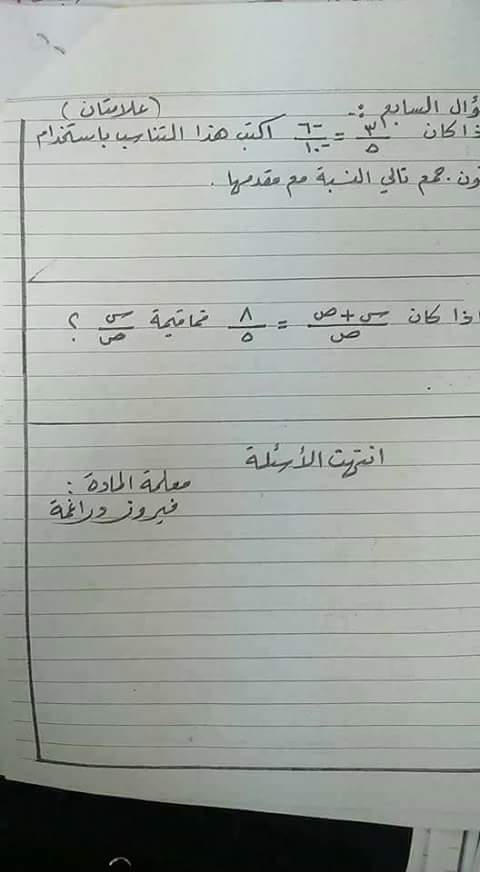 ؤال السابع :- (علامتان)
ذا كان ٣/٥ = ٦-/١٠- اكتب هذا التناسب باستخدام
ون جمع تالي النسبة مع مقدمها .
اذا كان س+ص/ص = ٨/٥ فما قيمة س/ص ؟
انتهت الأسئلة
معلمة المادة :
فيروز دراغمة